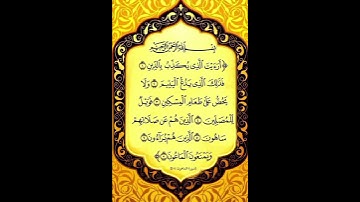 بسم الله الرحمن الرحيم
﴿ أَرَءَيْتَ ٱلَّذِى يُكَذِّبُ بِٱلدِّينِ ١
فَذَٰلِكَ ٱلَّذِى يَدُعُّ ٱلْيَتِيمَ ٢ وَلَا
يَحُضُّ عَلَىٰ طَعَامِ ٱلْمِسْكِينِ ٣ فَوَيْلٌ
لِّلْمُصَلِّينَ ٤ ٱلَّذِينَ هُمْ عَن صَلَاتِهِمْ
سَاهُونَ ٥ ٱلَّذِينَ هُمْ يُرَآءُونَ ٦
وَيَمْنَعُونَ ٱلْمَاعُونَ ٧ ﴾